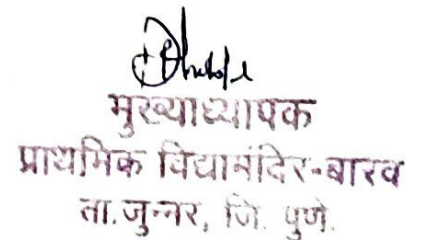 मुख्याध्यापक
प्राथमिक विद्यामंदिर-बारव
ता. जुन्नर, जि. पुणे.